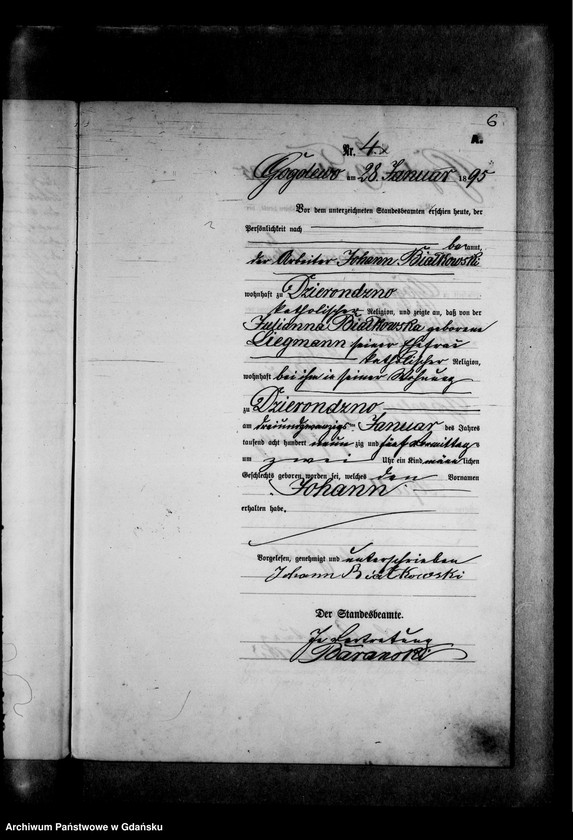 6
A.
Nr. 4.
Gogolewo am 28. Januar 1895
Vor dem unterzeichneten Standesbeamten erschien heute, der
Persönlichkeit nach
bekannt,
der Arbeiter Johann Białkowski
wohnhaft zu Dzierondzno
katholischer Religion, und zeigte an, daß von der
Julianna Białkowska geborene
Liegmann seiner Ehefrau
katholischer Religion,
wohnhaft bei ihm in seiner Wohnung
zu Dzierondzno
am dreiundzwanzigsten Januar des Jahres
tausend acht hundert neunzig und fünf Vormittags
um zwei Uhr ein Kind männlichen
Geschlechts geboren worden sei, welches den Vornamen
Johann
erhalten habe.
Vorgelesen, genehmigt und unterschrieben
Johann Białkowski
Der Standesbeamte.
In Vertretung
Baranski
Archiwum Państwowe w Gdańsku